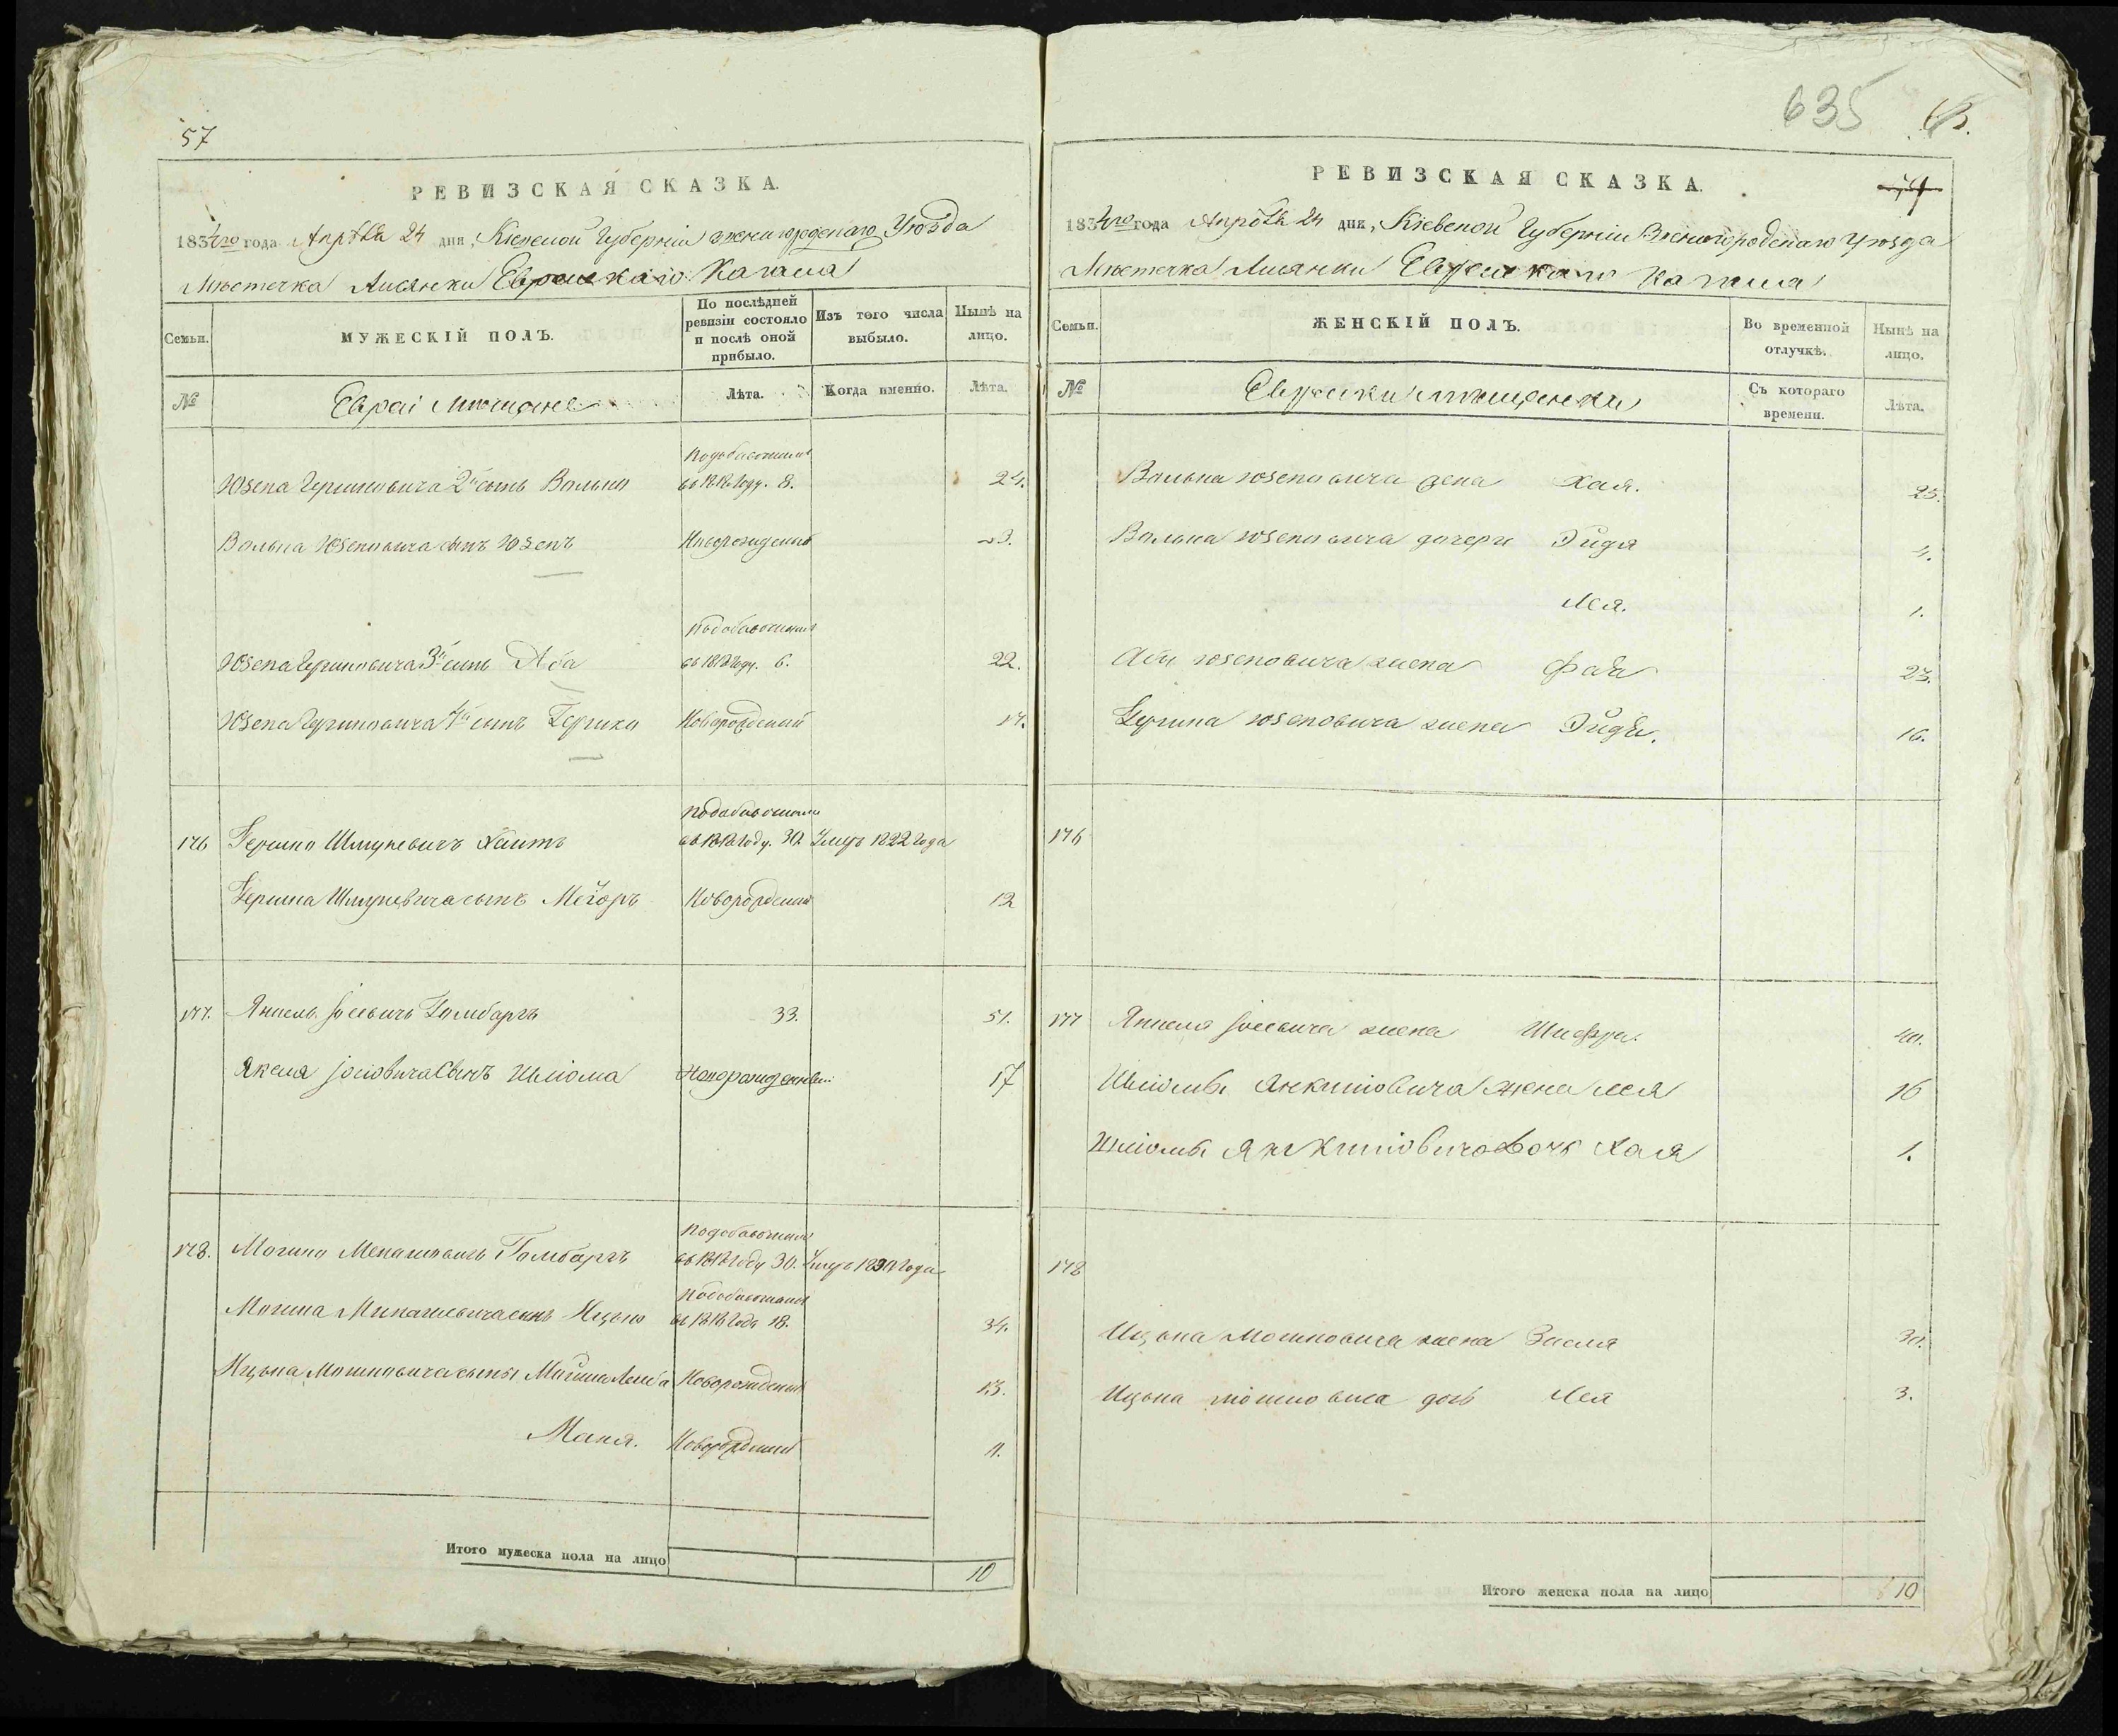 57
РЕВИЗСКАЯ СКАЗКА.
1834го года Апрѣля 24 дня, Кіевской Губерніи Звенигородскаго Уѣзда
Мѣстечка Лисянки Еврейскаго Кагала
Семьи.
МУЖЕСКІЙ ПОЛЪ.
По послѣдней ревизіи состояло и послѣ оной прибыло.
Изъ того числа выбыло.
Нынѣ на лицо.
№
Евреи Мѣщане
Лѣта.
Когда именно.
Лѣта.
Юзепа Гершковича 2й сынъ Волько 8. 24.
Волька Юзеповича сынъ Юзепъ Новорожденый 3.
Юзепа Гершковича 3й сынъ Аба 6. 22.
Юзепа Гершковича 4й сынъ Гершко Новорожденый 17.
176 Гершко Шмулевичъ 30. Умеръ 1822 года
Гершка Шмулевича сынъ Мееръ Новорожденый 12
177. Янкель Іосевичъ Гамбаргъ 33. 51.
Якеля Іосіовича Сынъ Шліома Новорожденный 17
178. Мошко Менашевичъ Гамбаргъ 30.
Мошка Минашевича сынъ Ицько 18. 34.
Ицька Мошковича сыны Мошка Лейба Новорожденый 13.
Новорожденый 11.
Итого мужеска пола на лицо 10
635
РЕВИЗСКАЯ СКАЗКА.
1834го года Апрѣля 24 дня, Кіевской Губерніи Звенигородскаго Уѣзда
Мѣстечка Лисянки Еврейскаго Кагала
Семьи.
ЖЕНСКІЙ ПОЛЪ.
Во временной отлучкѣ.
Нынѣ на лицо.
№
Еврейки мѣщанки
Съ котораго времени.
Лѣта.
Волька Юзеповича жена Хая. 25.
Волька Юзеповича дочери Эйдя 4.
Лея. 1.
Абы Юзеповича жена 23.
Гершка Юзеповича жена 16.
176
177 Янкеля Іосевича жена Шифра. 40.
Шліомы Янкиліовича жена Лея 16
Шліомы Янкиліовича дочь Хая 1.
178
Ицька Мошковича жена Зисля 30.
Ицька Мошковича дочь Лея 3.
Итого женска пола на лицо 10